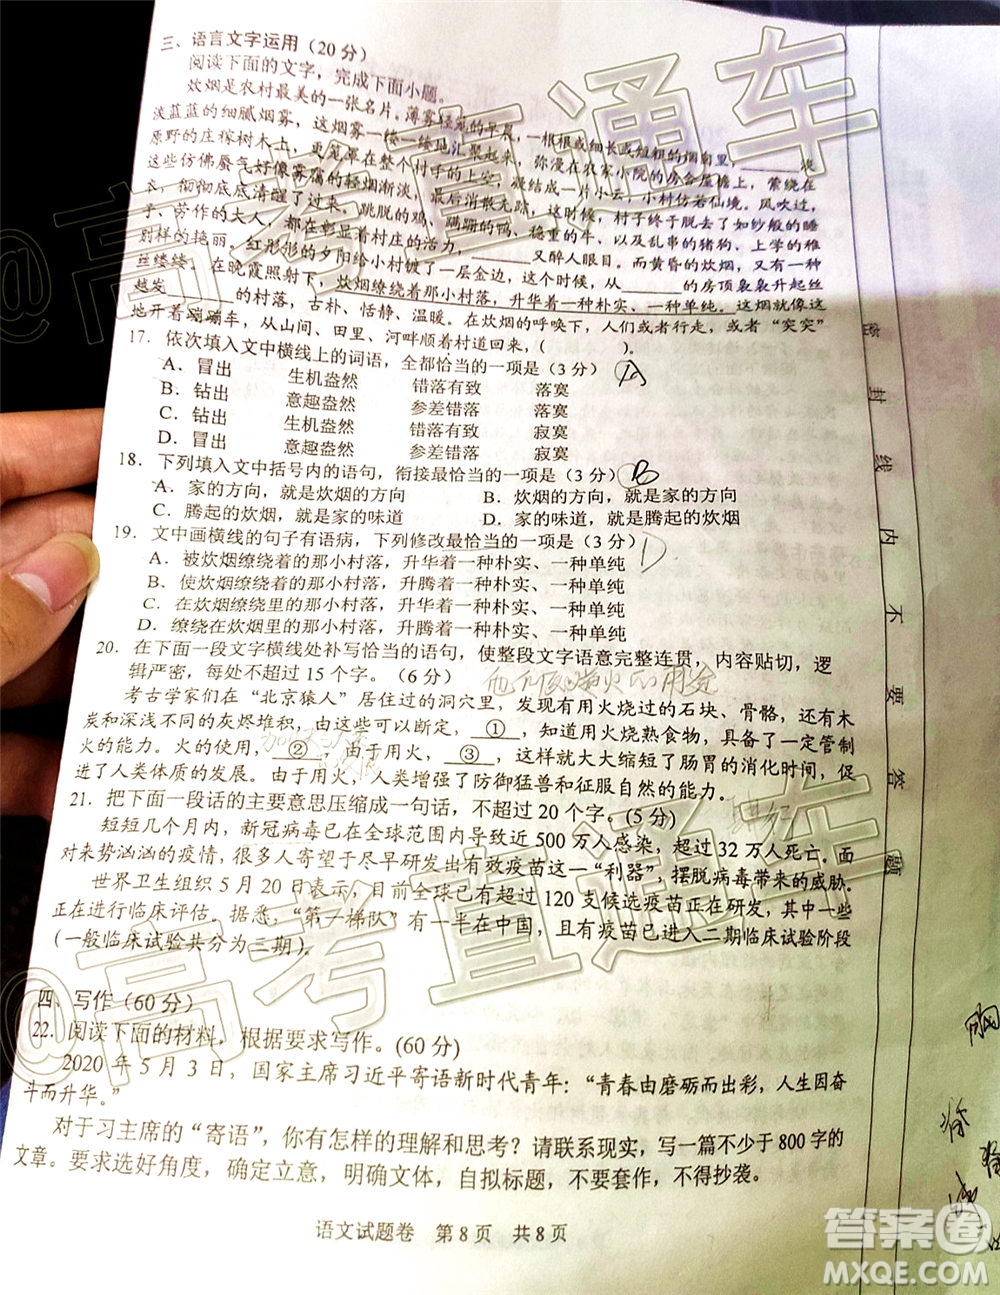 三、语言文字运用（20分）
阅读下面的文字，完成下面小题。
炊烟是农村最美的一张名片。薄雾轻笼的早晨，一根根或细长或短粗的烟囱里，______淡
淡蓝蓝的细腻烟雾，这烟雾一缕一缕地汇聚起来，弥漫在农家小院的房舍屋檐上，萦绕在
原野的庄稼树木上，更笼罩在整个村子的上空，凝结成一片小云，小村仿若仙境。风吹过，
这些仿佛蜃气好像雾霭的轻烟渐淡，最后消散无踪，这时候，村子脱去了如纱般的睡
衣，彻底底清醒了。跳脱的鸡、蹒跚的鸭、稳重的牛、以及乱串的猪狗、上学的孩
子、劳作的大人，都在彰显着村庄的活力，______又醉人眼目。而黄昏的炊烟，又是
别样的艳丽。红彤彤的夕阳给小村镀了一层金边，这时候，______的房顶袅袅升起丝
丝缕缕。在晚霞照射中，炊烟缭绕着那小村落，升华着一种朴实、一种单纯。这烟就像
越发______的村落，古朴、恬静、温暖。在炊烟的呼唤下，人们或者行走，或者“突突”
地开着蹦蹦车，从山间、田里、河畔顺着村道回来，（ ）。
17．依次填入文中横线上的词语，全都恰当的一项是（3分）A
A．冒出 生机盎然 错落有致 落寞
B．钻出 意趣盎然 参差错落 落寞
C．钻出 生机盎然 错落有致 寂寞
D．冒出 意趣盎然 参差错落 寂寞
18．下列填入文中括号内的语句，衔接最恰当的一项是（3分）B
A．家的方向，就是炊烟的方向 B．炊烟的方向，就是家的方向
C．腾起的炊烟，就是家的味道 D．家的味道，就是腾起的炊烟
19．文中画横线的句子有语病，下列修改最恰当的一项是（3分）D
A．被炊烟缭绕着的那小村落，升华着一种朴实、一种单纯
B．使炊烟缭绕着的那小村落，升腾着一种朴实、一种单纯
C．在炊烟缭绕里的那小村落，升华着一种朴实、一种单纯
D．缭绕在炊烟里的那小村落，升腾着一种朴实、一种单纯
20．在下面一段文字横线处补写恰当的语句，使整段文字语意完整连贯，内容贴切，逻
辑严密，每处不超过15个字。（6分）
考古学家们在“北京猿人”居住过的洞穴里，发现有用火烧过的石块、骨骼，还有木
炭和深浅不同的灰烬堆积，由此可以断定，①，知道用火烧熟食物，具备了一定管制
火的能力。火的使用，②，由于用火，③，这样就大大缩短了肠胃的消化时间，促
进了人类体质的发展。由于用火，人类增强了防御猛兽和征服自然的能力。
21．把下面一段话的主要意思压缩成一句话，不超过20个字。(5分)
短短几个月内，新冠病毒已在全球范围内导致近500万人感染，超过32万人死亡。面
对来势汹汹的疫情，很多人寄望于尽早研发出有效疫苗这一“利器”，摆脱病毒带来的威胁。
世界卫生组织5月20日表示，目前全球已有超过120支候选疫苗正在研发，其中一些
正在进行临床评估。据悉，“第一梯队”有一半在中国，且有疫苗已进入二期临床试验阶段
(一般临床试验共分为三期)。
四、写作(60分)
22．阅读下面的材料，根据要求写作。(60分)
2020年5月3日，国家主席习近平寄语新时代青年：“青春由磨砺而出彩，人生因奋
斗而升华。”
对于习主席的“寄语”，你有怎样的理解和思考？请联系现实，写一篇不少于800字的
文章。要求选好角度，确定立意，明确文体，自拟标题，不要套作，不得抄袭。
语文试题卷 第8页 共8页
密封线内不要答题
@高考直通车
@高考直通车
答案圈
MXQE.COM